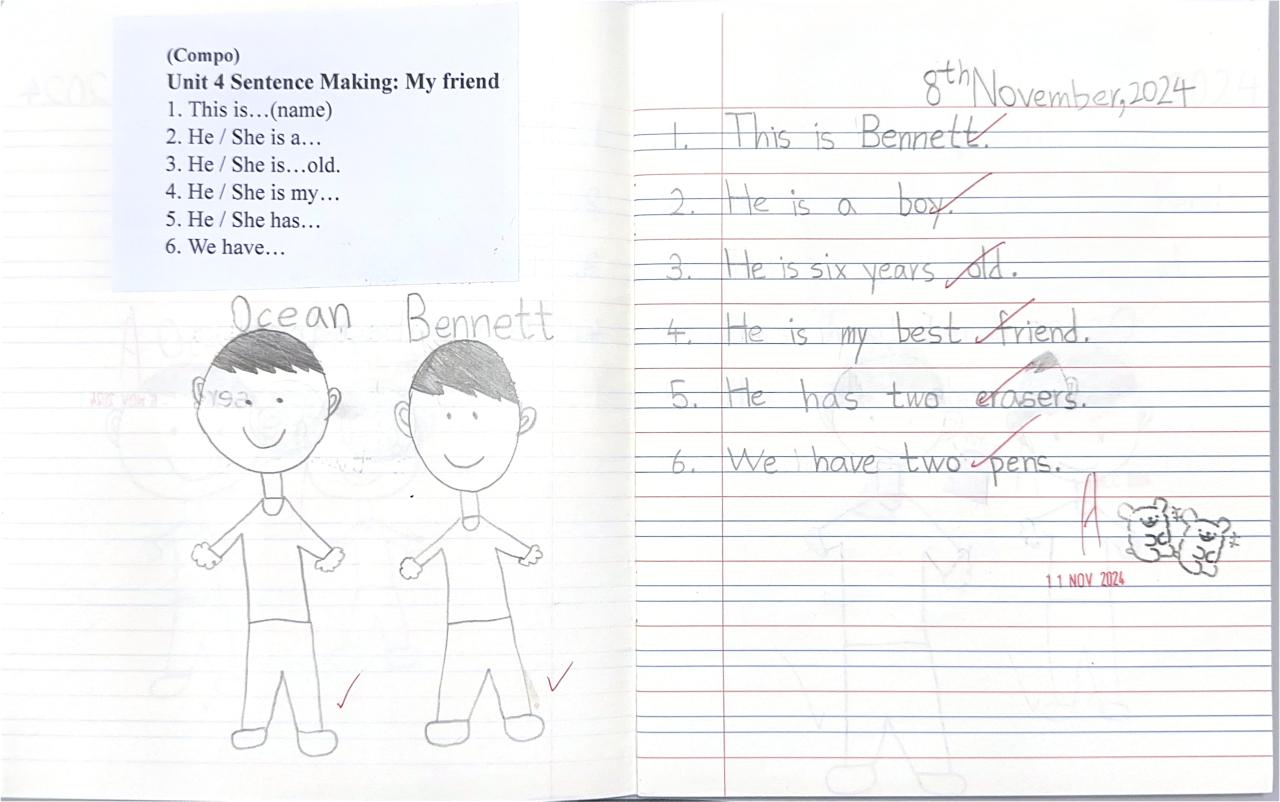 (Compo)
Unit 4 Sentence Making: My friend
1. This is…(name)
2. He / She is a…
3. He / She is…old.
4. He / She is my…
5. He / She has…
6. We have…
Ocean Bennett
8th November, 2024
1. This is Bennett.
2. He is a boy.
3. He is six years old.
4. He is my best friend.
5. He has two erasers.
6. We have two pens.
A
11 NOV 2024